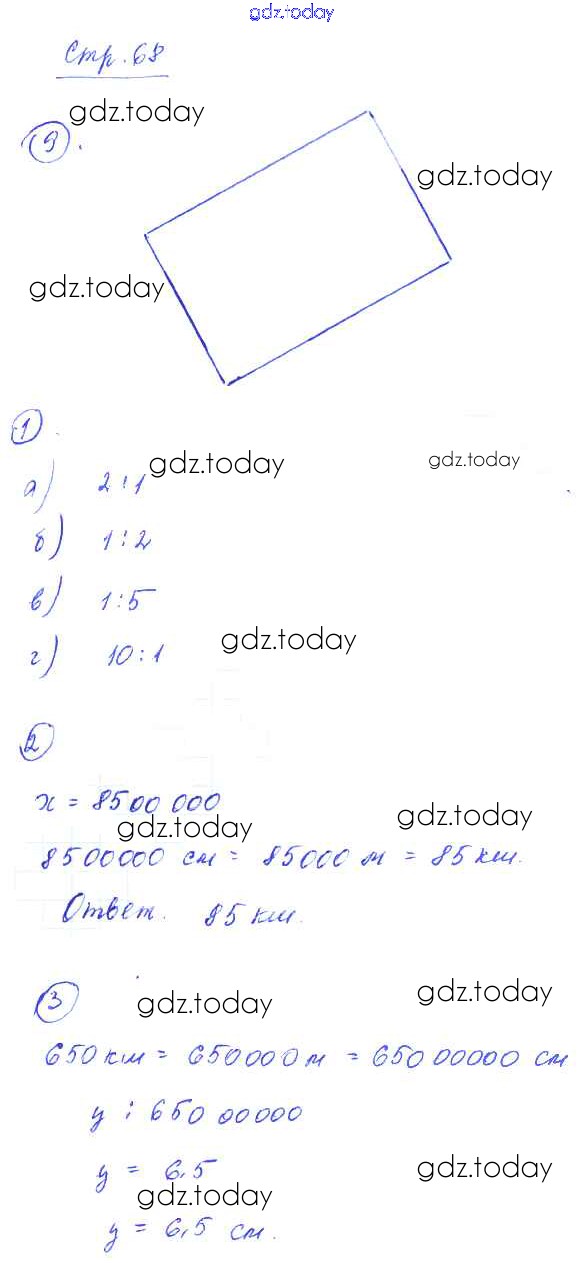 gdz.today
Стр. 68
gdz.today
9.
gdz.today
gdz.today
1.
gdz.today
gdz.today
а) 2:1
б) 1:2
в) 1:5
gdz.today
г) 10:1
2
x = 8500 000
gdz.today
gdz.today
8500000 см = 85000 м = 85 км.
Ответ. 85 км.
3
gdz.today
gdz.today
650 км = 650000 м = 65000000 см
y : 650 00000
y = 6.5
gdz.today
gdz.today
y = 6,5 см.